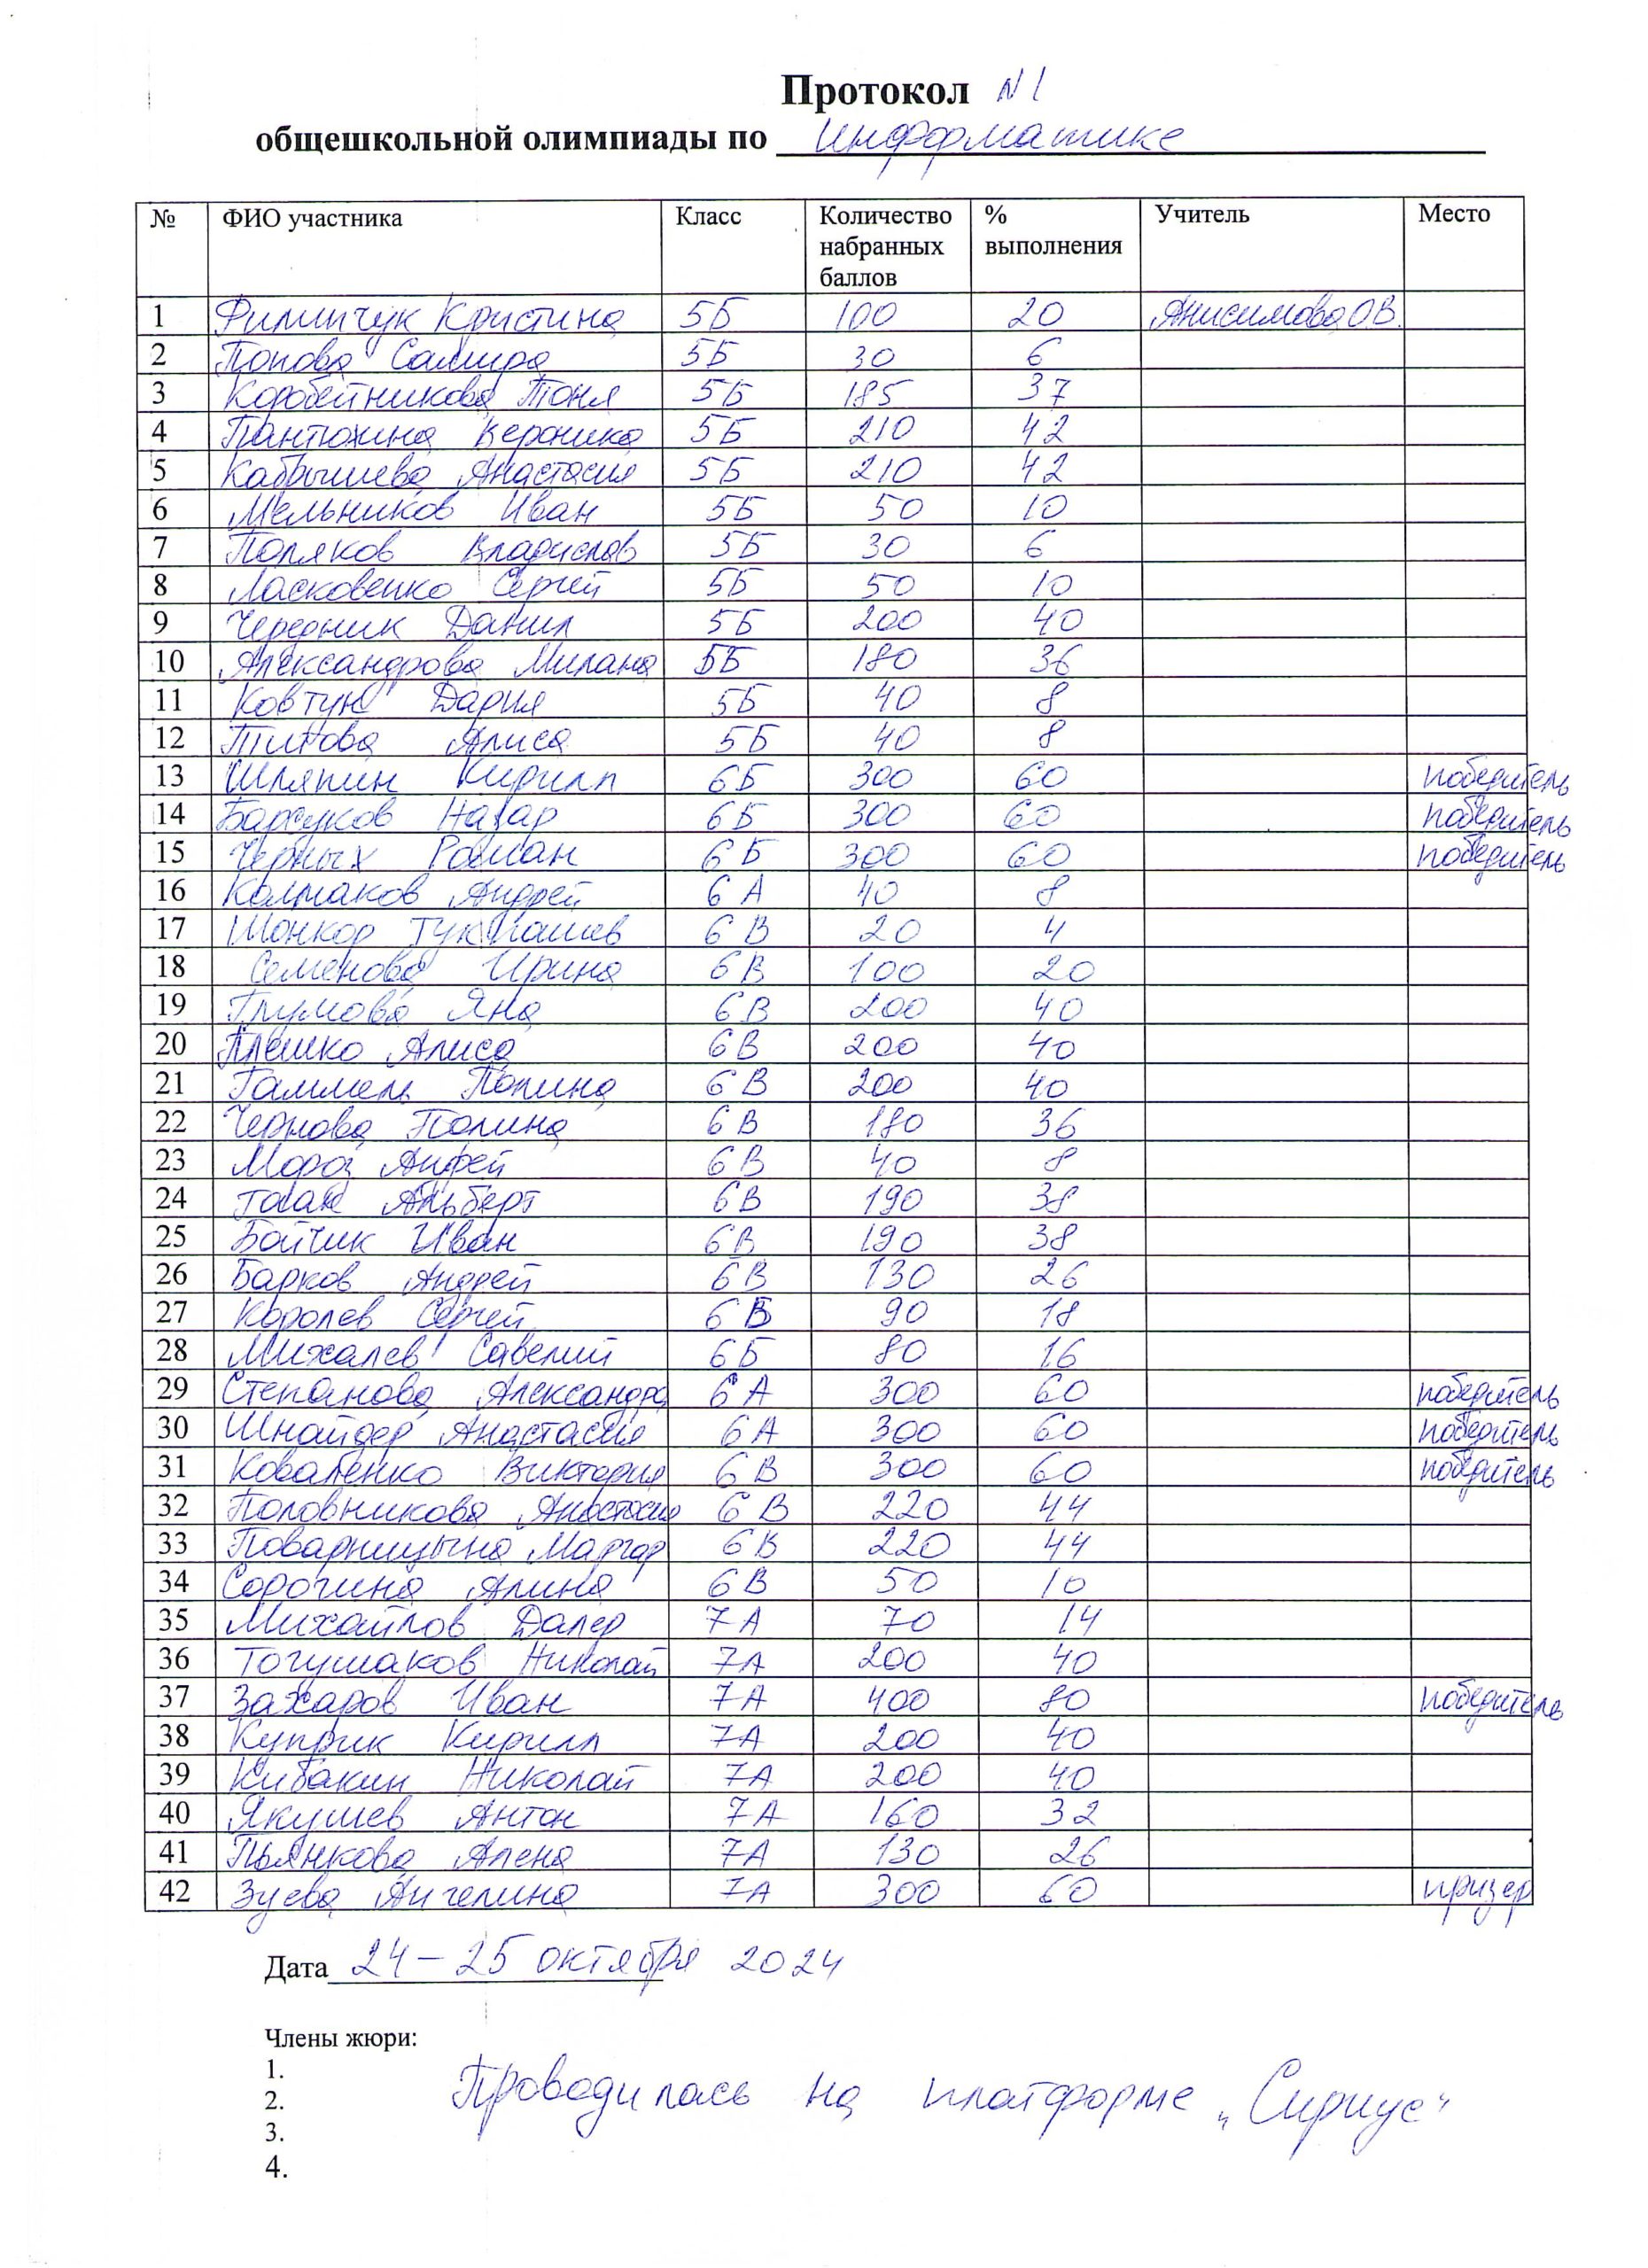 Протокол N1
общешкольной олимпиады по информатике
№ ФИО участника Класс Количество набранных баллов % выполнения Учитель Место
1 Филипчук Кристина 5Б 100 20 Анисимова О.В.
2 Попова Самира 5Б 30 6
3 Коробейникова Тоня 5Б 185 37
4 Пантюхина Вероника 5Б 210 42
5 Кабрышева Анастасия 5Б 210 42
6 Мельников Иван 5Б 50 10
7 Поляков Владислав 5Б 30 6
8 Ласковенко Сергей 5Б 50 10
9 Чередник Данил 5Б 200 40
10 Александрова Милана 5Б 180 36
11 Ковтун Дария 5Б 40 8
12 Титова Алиса 5Б 40 8
13 Шляпин Кирилл 6Б 300 60 победитель
14 Барсуков Назар 6Б 300 60 победитель
15 Черных Роман 6Б 300 60 победитель
16 Колмаков Андрей 6А 40 8
17 Шонкор 6В 20 4
18 Семенова Ирина 6В 100 20
19 Глумова Яна 6В 200 40
20 Плешко Алиса 6В 200 40
21 Гаммель Полина 6В 200 40
22 Чернова Полина 6В 180 36
23 Мороз 6В 40 8
24 Альберт 6В 190 38
25 Бойчик Иван 6В 190 38
26 Барков Андрей 6В 130 26
27 Королев Сергей 6В 90 18
28 Михалев Савелий 6Б 80 16
29 Степанова Александра 6А 300 60 победитель
30 Шнайдер Анастасия 6А 300 60 победитель
31 Коваленко Виктория 6В 300 60 победитель
32 Половникова Анастасия 6В 220 44
33 Поварницына Маргар 6В 220 44
34 Сорогина Алина 6В 50 10
35 Михайлов Далер 7А 70 14
36 Тогушаков Николай 7А 200 40
37 Захаров Иван 7А 400 80 победитель
38 Куприк Кирилл 7А 200 40
39 Кибакин Николай 7А 200 40
40 Якушев Антон 7А 160 32
41 Пьянкова Алена 7А 130 26
42 Зуева Ангелина 7А 300 60 призер
Дата 24-25 октября 2024
Члены жюри:
1.
2.
3.
4.
Проводилась на платформе „Сириус"